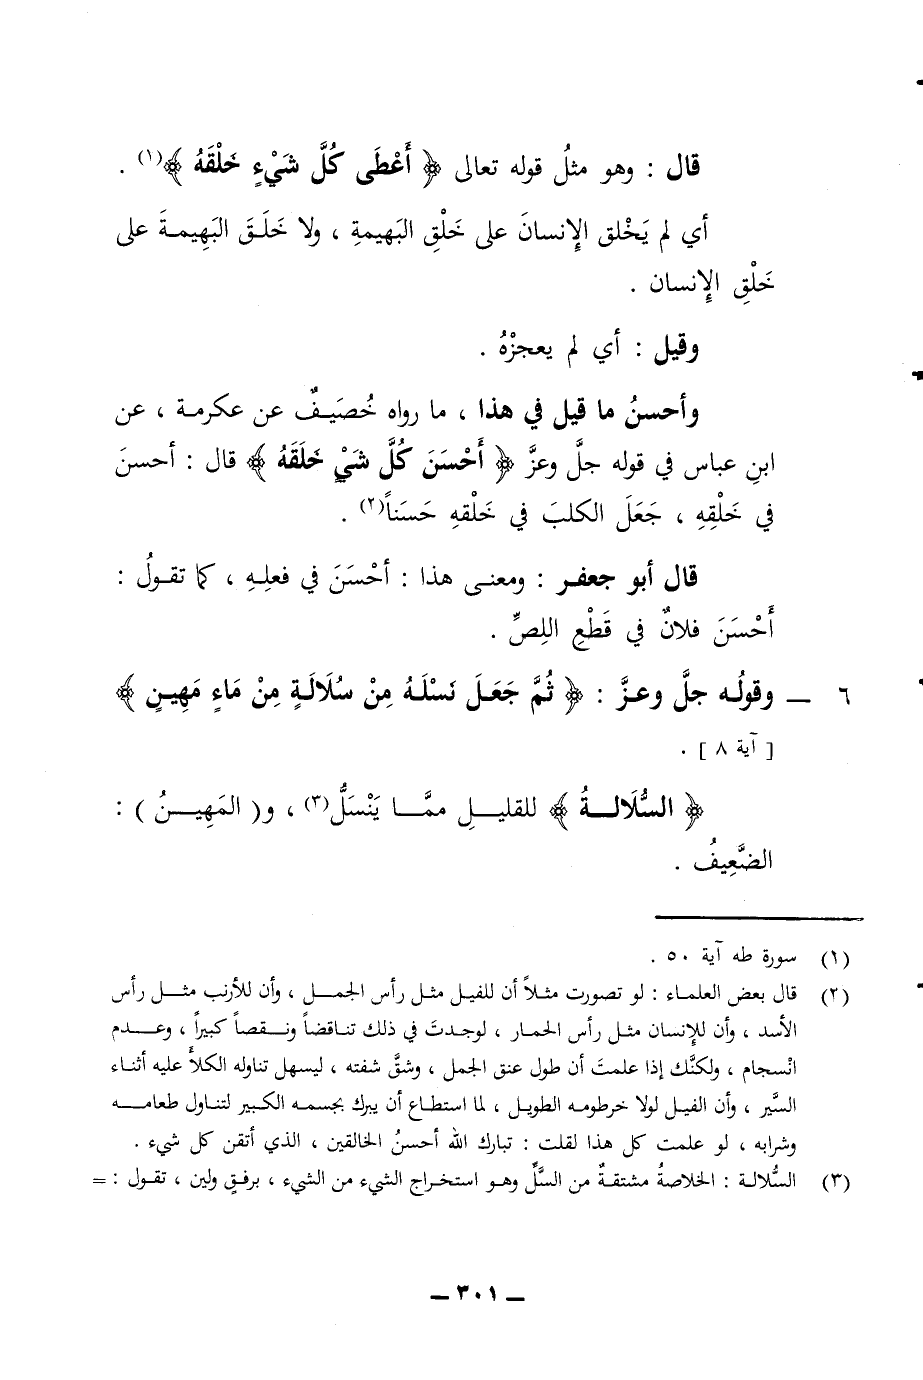 قال : وهو مثلُ قوله تعالى ﴿ أَعْطَى كُلَّ شَيْءٍ خَلْقَهُ ﴾(١) .
أي لم يَخْلق الإِنسانَ على خَلْقِ البَهيمةِ ، ولا خَلَقَ البَهِيمةَ على
خَلْقِ الإِنسان .
وقيل : أي لم يعجزْهُ .
وأحسنُ ما قيل في هذا ، ما رواه خُصَيفٌ عن عكرمة ، عن
ابنِ عباس في قوله جلَّ وعزَّ ﴿ أَحْسَنَ كُلَّ شَيْءٍ خَلَقَهُ ﴾ قال : أحسنَ
في خَلْقِهِ ، جَعَلَ الكلبَ في خَلْقهِ حَسَناً(٢) .
قال أبو جعفر : ومعنى هذا : أحْسَنَ في فعلِهِ ، كما تقولُ :
أَحْسَنَ فلانٌ في قَطْعِ اللِصِّ .
٦ ــ وقولُه جلَّ وعزَّ : ﴿ ثُمَّ جَعَلَ نَسْلَهُ مِنْ سُلَالَةٍ مِنْ مَاءٍ مَهِينٍ ﴾
[ آية ٨ ] .
﴿ السُّلَالةُ ﴾ للقليلِ ممَّا يَنْسَلُّ(٣) ، و( المَهِينُ ) :
الضَّعِيفُ .
(١) سورة طه آية ٥٠ .
(٢) قال بعض العلماء : لو تصورت مثلاً أن للفيل مثل رأس الجمل ، وأن للأرنب مثل رأس
الأسد ، وأن للإِنسان مثل رأس الحمار ، لوجدتَ في ذلك تناقضاً ونقصاً كبيراً ، وعدم
انْسجام ، ولكنَّك إذا علمتَ أن طول عنق الجمل ، وشقَّ شفته ، ليسهل تناوله الكلأَ عليه أثناء
السَّير ، وأن الفيل لولا خرطومه الطويل ، لما استطاع أن يبرك بجسمه الكبير لتناول طعامه
وشرابه ، لو علمت كل هذا لقلت : تبارك الله أحسنُ الخالقين ، الذي أتقن كل شيء .
(٣) السُّلالة : الخلاصةُ مشتقةٌ من السَّلِّ وهو استخراج الشيء من الشيء ، برفقٍ ولين ، تقول : =
ــ ٣٠١ ــ